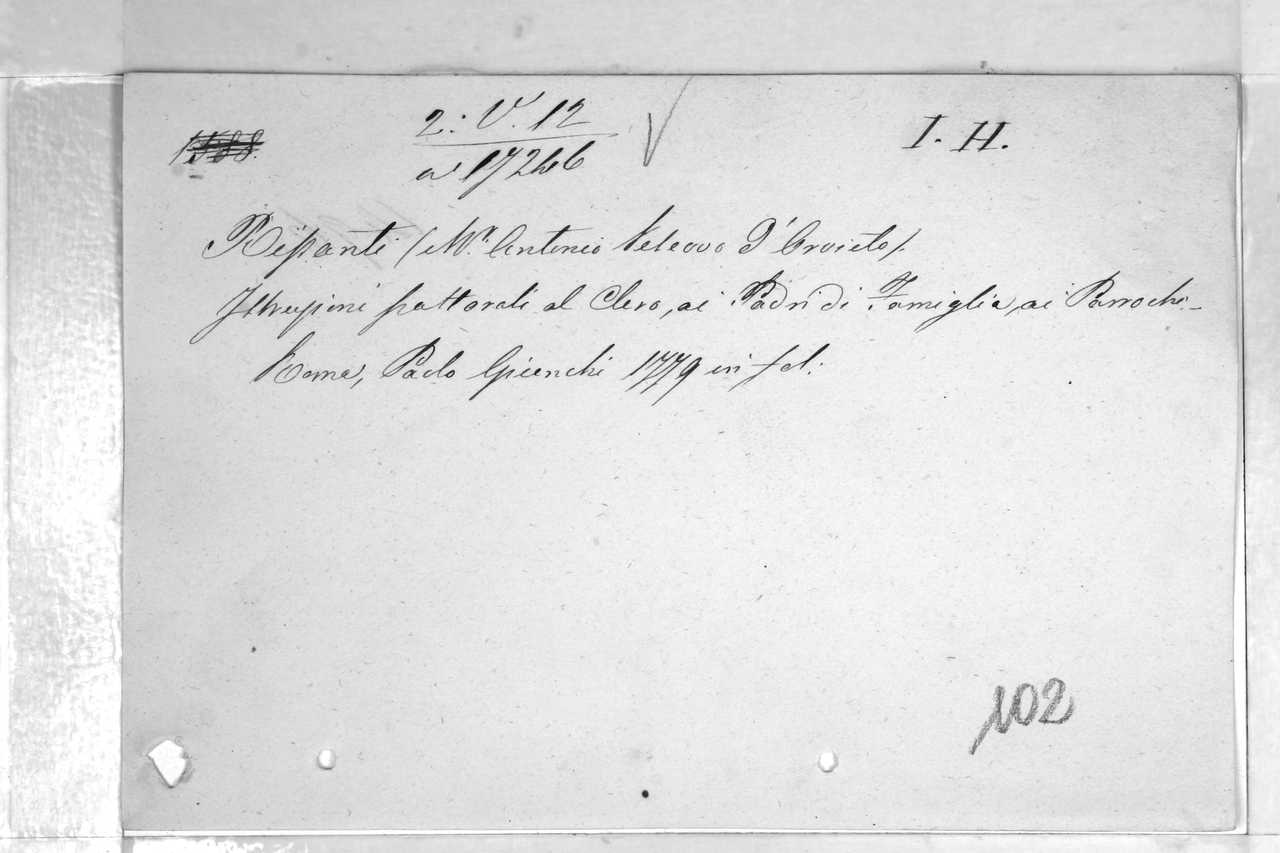 1588.
2: V. 12
I. H.
a 17246
Ripanti (Mr. Antonio Vescovo d'Orvieto).
Istruzioni pastorali al Clero, ai Padri di Famiglia, ai Parrochi.-
Roma, Paolo Giunchi 1779 in fol:
102